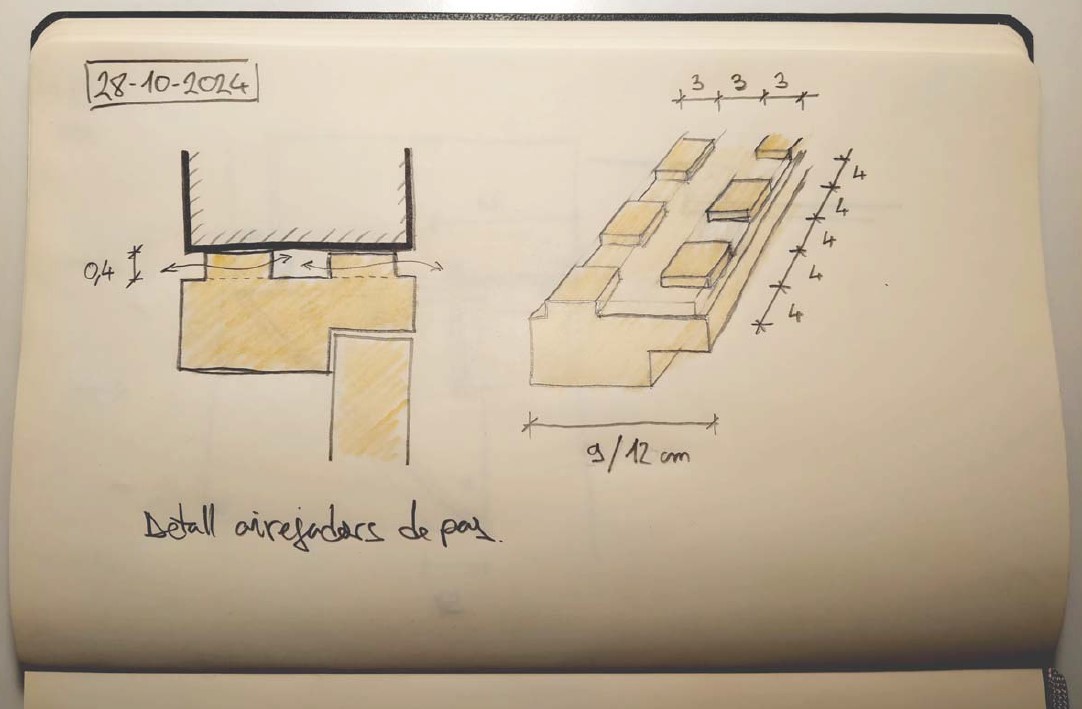 28-10-2024
3 3 3
4
4
4
4
4
0,4
9/12 cm
Detall airejadors de pas.